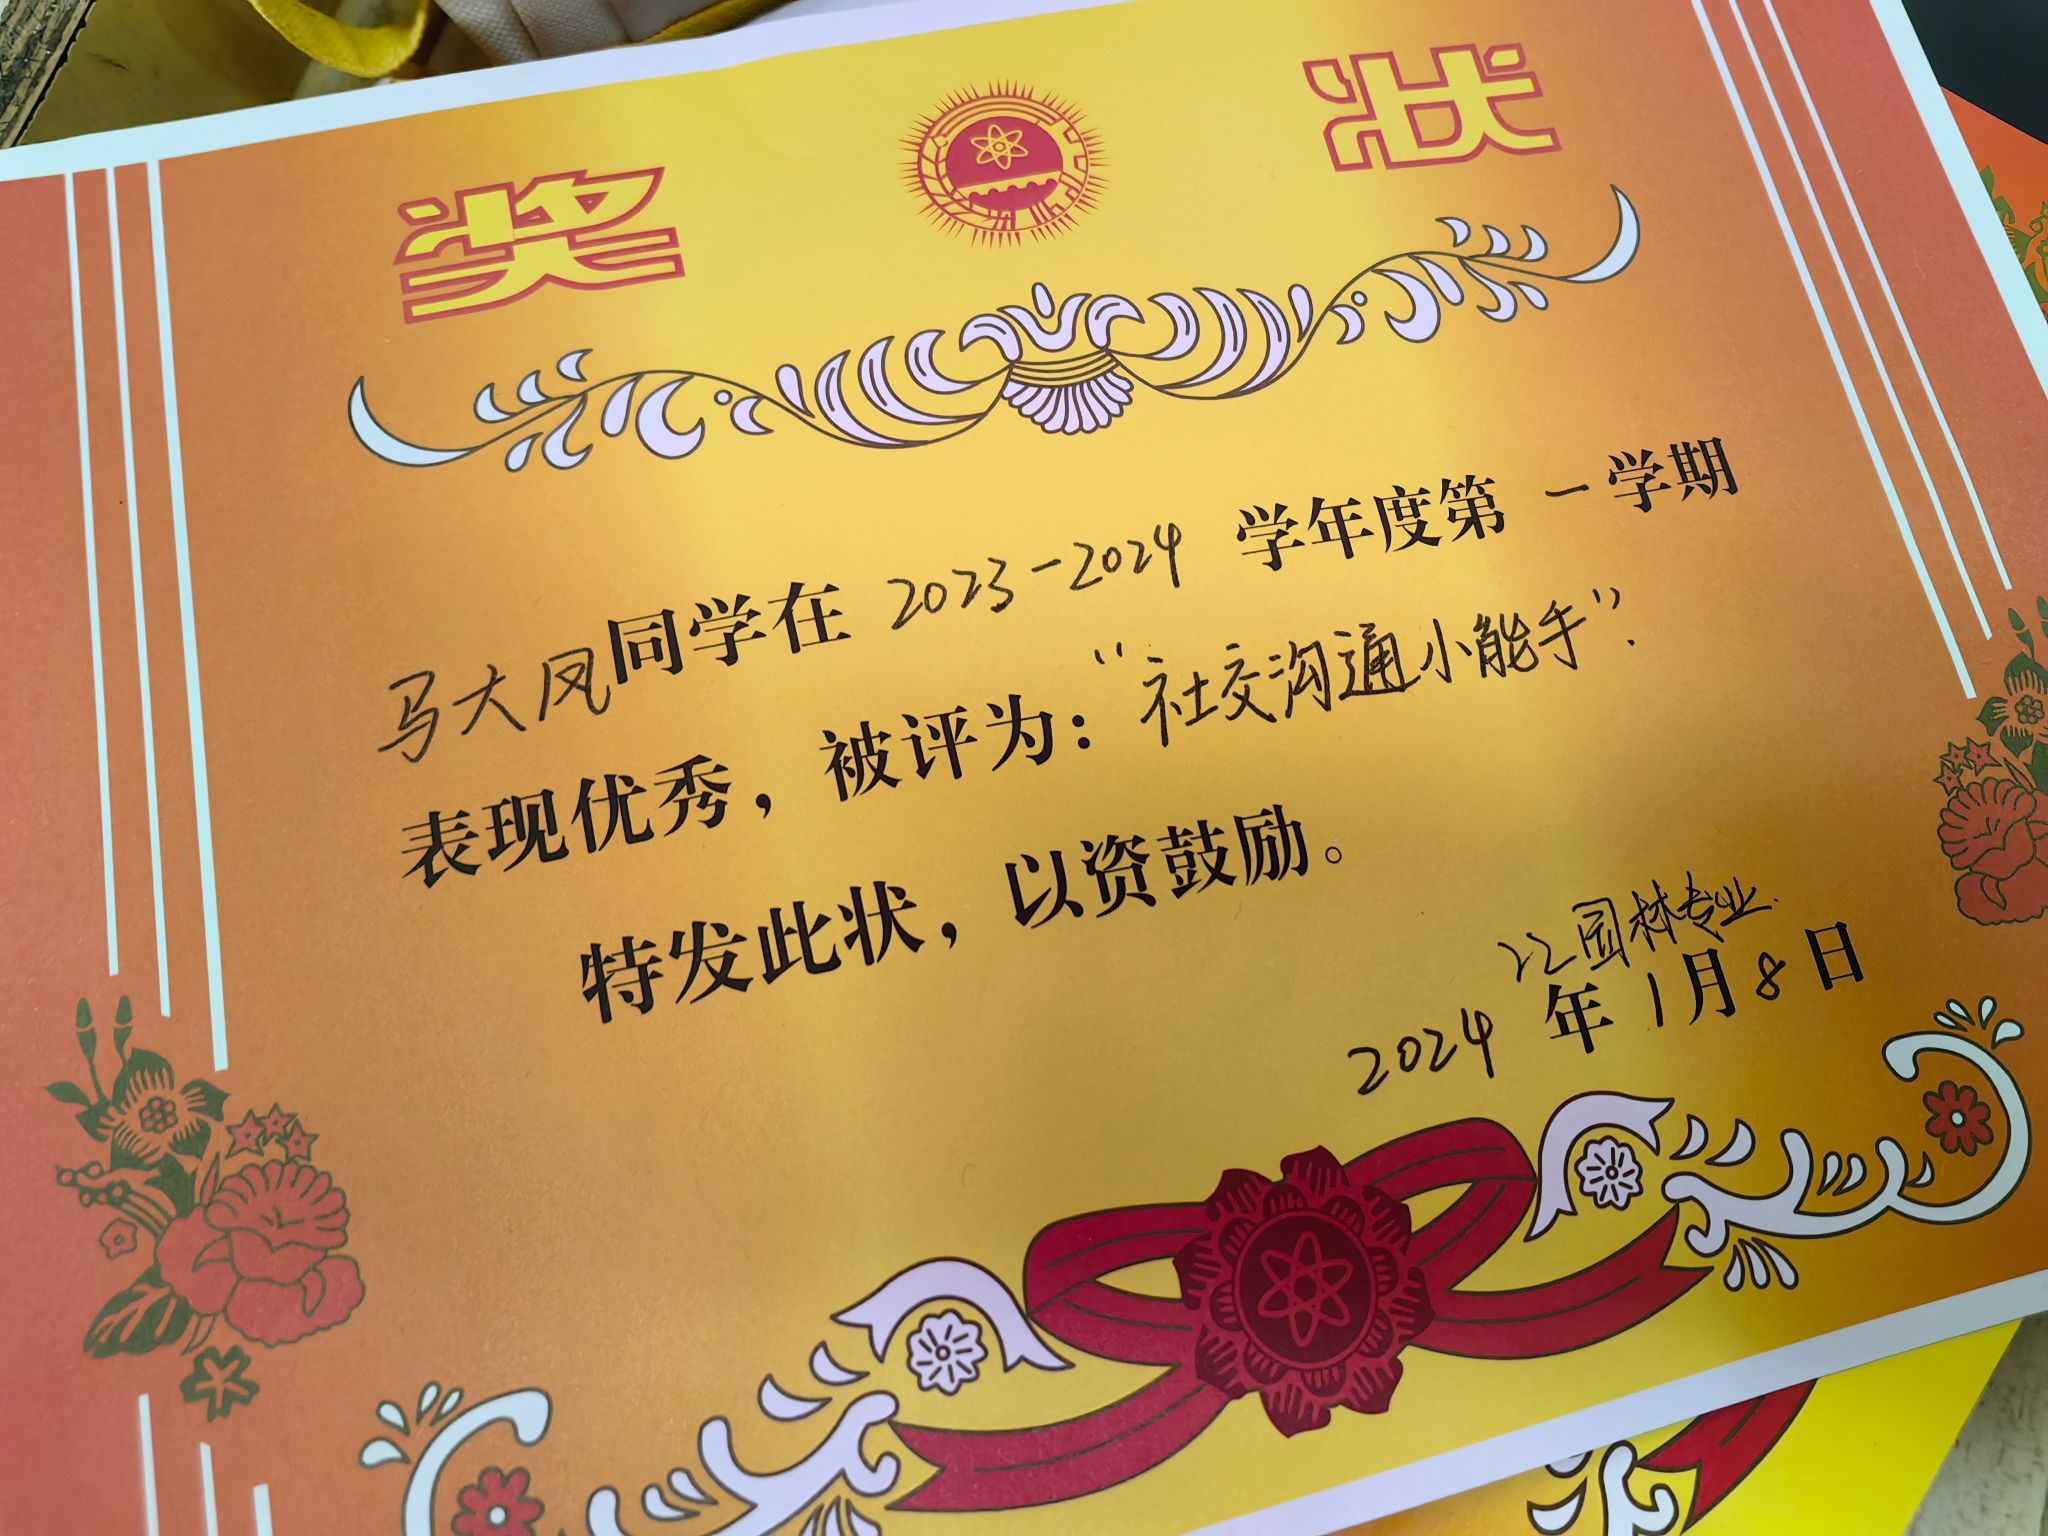 奖 状
马大凤同学在 2023-2024 学年度第一学期
表现优秀，被评为：“社交沟通小能手”.
特发此状，以资鼓励。
22园林专业.
2024年1月8日